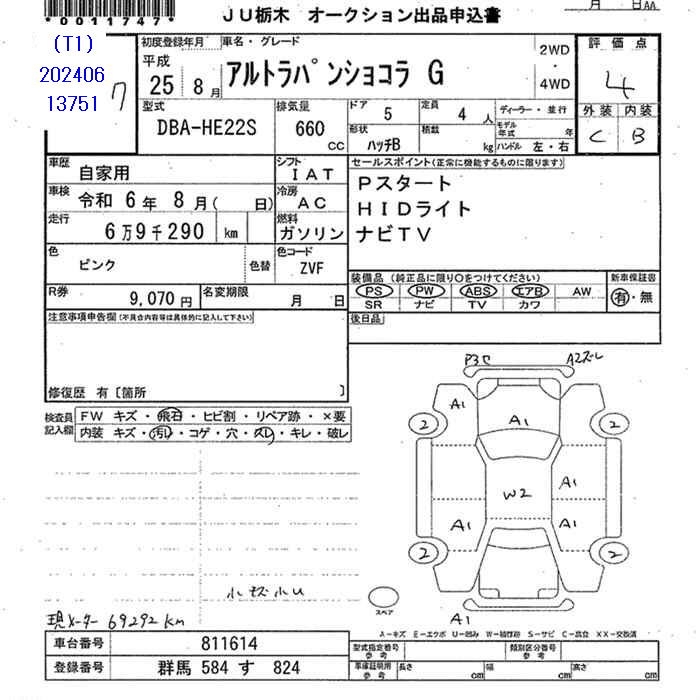 0011747
JU栃木 オークション出品申込書
月 日AA
(T1)
202406
13751
7
初度登録年月 車名・グレード
平成
25 8月
アルトラパンショコラ G
2WD
・
4WD
評価点
4
外装 内装
C B
型式
DBA-HE22S
排気量
660
CC
ドア
5
定員
4人
ディーラー・並行
形状
ハッチB
積載
kg
モデル年式
年
ハンドル 左・右
車歴
自家用
シフト
IAT
車検
令和 6年 8月( 日)
冷房
AC
走行
6万9千290 km
燃料
ガソリン
色
ピンク
色替
色コード
ZVF
R券
9,070円
名変期限
月 日
セールスポイント(正常に機能するものに限ります)
Pスタート
HIDライト
ナビTV
装備品(純正品に限り○をつけてください)
PS PW ABS エアB AW
SR ナビ TV カワ
新車保証書
有・無
後日品
注意事項申告欄(不具合内容等は具体的に記入して下さい)
修復歴 有〔箇所 〕
検査員記入欄
FW キズ・飛石・ヒビ割・リペア跡・×要
内装 キズ・汚れ・コゲ・穴・スレ・キレ・破レ
P3C A2ズレ
A1
A1
2 2
W2
A1
A1 A1
2 2
A1
スペア
小キズ小U
現メーター 69292km
A−キズ E−エクボ U−凹み W−補修跡 S−サビ C−腐食 XX−交換済
車台番号
811614
登録番号
群馬 584 す 824
型式指定番号
参考
類別区分番号
参考
車庫証明用
参考
長さ cm 幅 cm 高さ cm